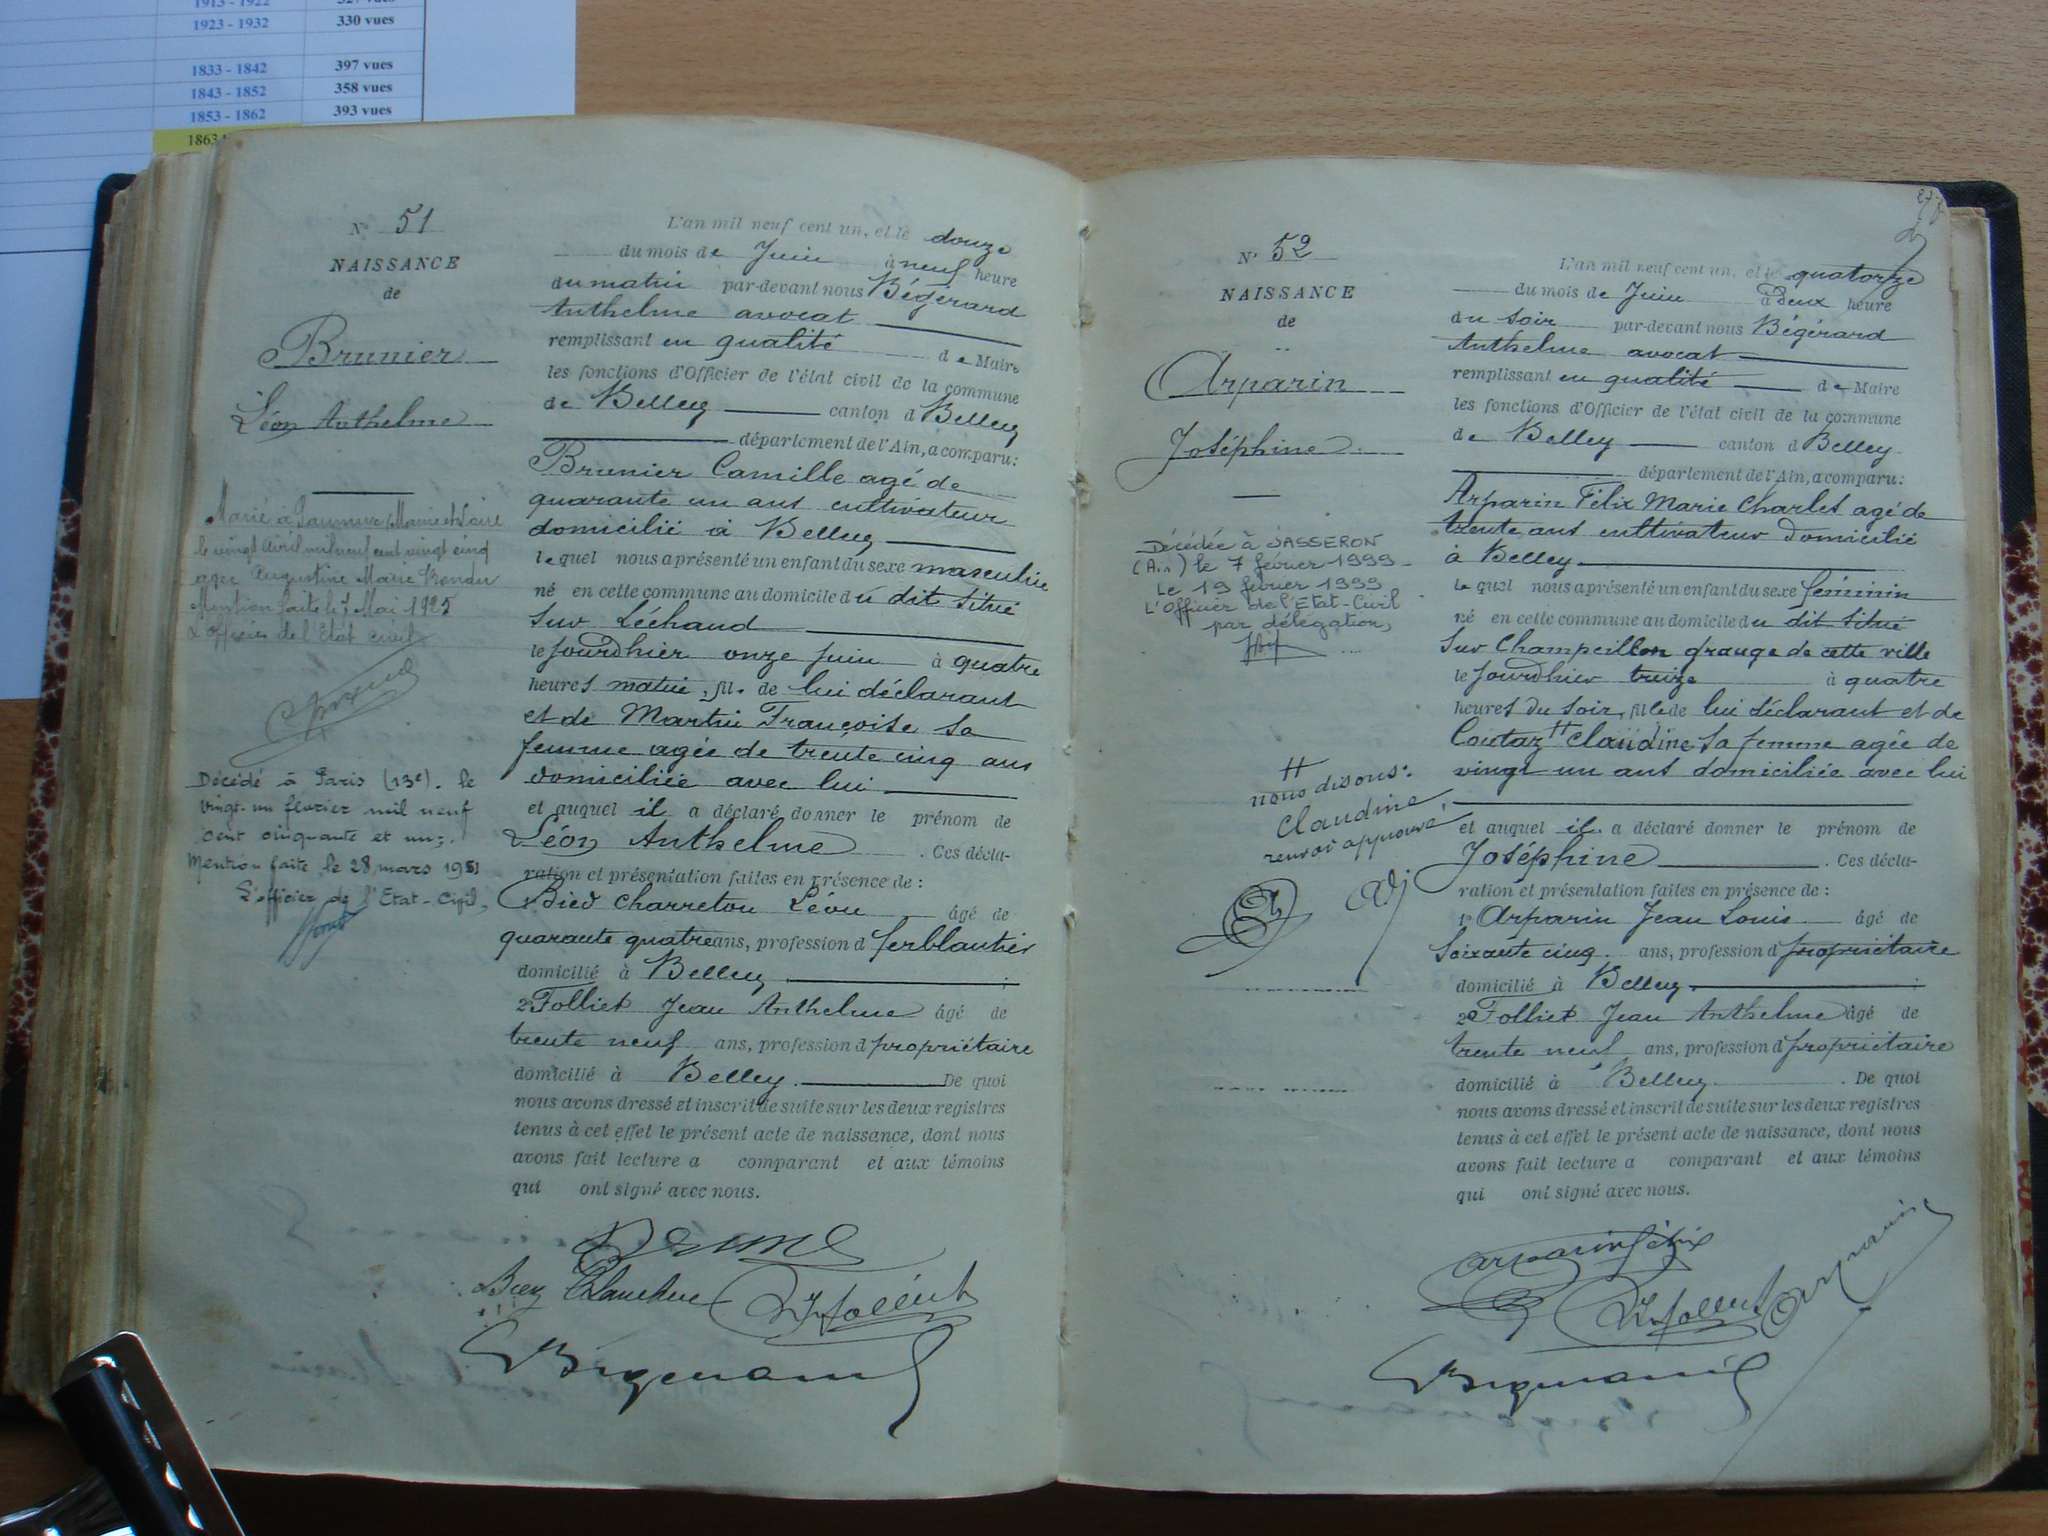 1913 - 1922 327 vues
1923 - 1932 330 vues
1833 - 1842 397 vues
1843 - 1852 358 vues
1853 - 1862 393 vues
1863
N° 51
NAISSANCE
de
Brunier
Léon Anthelme
Marié à Saumur (Maine et Loire
le vingt avril mil neuf cent vingt cinq
avec Augustine Marie
Mention faite le 1 Mai 1925
L'officier de l'Etat civil
Décédé à Paris (13e). le
vingt-un février mil neuf
cent cinquante et un.
Mention faite le 28 mars 1951
L'officier de l'Etat-Civil,
L'an mil neuf cent un, et le douze
du mois de Juin à neuf heure
du matin par-devant nous Bégérard
Anthelme avocat
remplissant en qualité de Maire
les fonctions d'Officier de l'état civil de la commune
de Belley canton d Belley
département de l'Ain, a comparu:
Brunier Camille agé de
quarante un ans cultivateur
domicilié à Belley
lequel nous a présenté un enfant du sexe masculin
né en cette commune au domicile du dit situé
sur Léchaud
le jourdhier onze juin à quatre
heures matin, fils de lui déclarant
et de Martin Françoise sa
femme agée de trente cinq ans
domiciliée avec lui
et auquel il a déclaré donner le prénom de
Léon Anthelme . Ces décla-
ration et présentation faites en présence de :
Bied Charreton Léon âgé de
quarante quatre ans, profession d ferblantier
domicilié à Belley ;
2° Folliet Jean Anthelme âgé de
trente neuf ans, profession d propriétaire
domicilié à Belley. De quoi
nous avons dressé et inscrit de suite sur les deux registres
tenus à cet effet le présent acte de naissance, dont nous
avons fait lecture a comparant et aux témoins
qui ont signé avec nous.
N° 52
NAISSANCE
de
Arparin
Joséphine
Décédée à JASSERON
(Ain) le 7 février 1999
Le 19 février 1999
L'Officier de l'Etat-Civil
par délégation,
H
nous disons:
Claudine
renvoi approuvé
L'an mil neuf cent un, et le quatorze
du mois de Juin à deux heure
du soir par-devant nous Bégérard
Anthelme avocat
remplissant en qualité de Maire
les fonctions d'Officier de l'état civil de la commune
de Belley canton d Belley
département de l'Ain, a comparu:
Arparin Félix Marie Charles agé de
trente ans cultivateur domicilié
à Belley
lequel nous a présenté un enfant du sexe féminin
né en cette commune au domicile du dit situé
sur Champeillon grange de cette ville
le jourdhier treize à quatre
heures du soir, fille de lui déclarant et de
Coutaz H Claudine sa femme agée de
vingt un ans domiciliée avec lui
et auquel il a déclaré donner le prénom de
Joséphine . Ces décla-
ration et présentation faites en présence de :
1° Arparin Jean Louis âgé de
soixante cinq ans, profession d propriétaire
domicilié à Belley ;
2° Folliet Jean Anthelme âgé de
trente neuf ans, profession d propriétaire
domicilié à Belley . De quoi
nous avons dressé et inscrit de suite sur les deux registres
tenus à cet effet le présent acte de naissance, dont nous
avons fait lecture a comparant et aux témoins
qui ont signé avec nous.
arparin félix